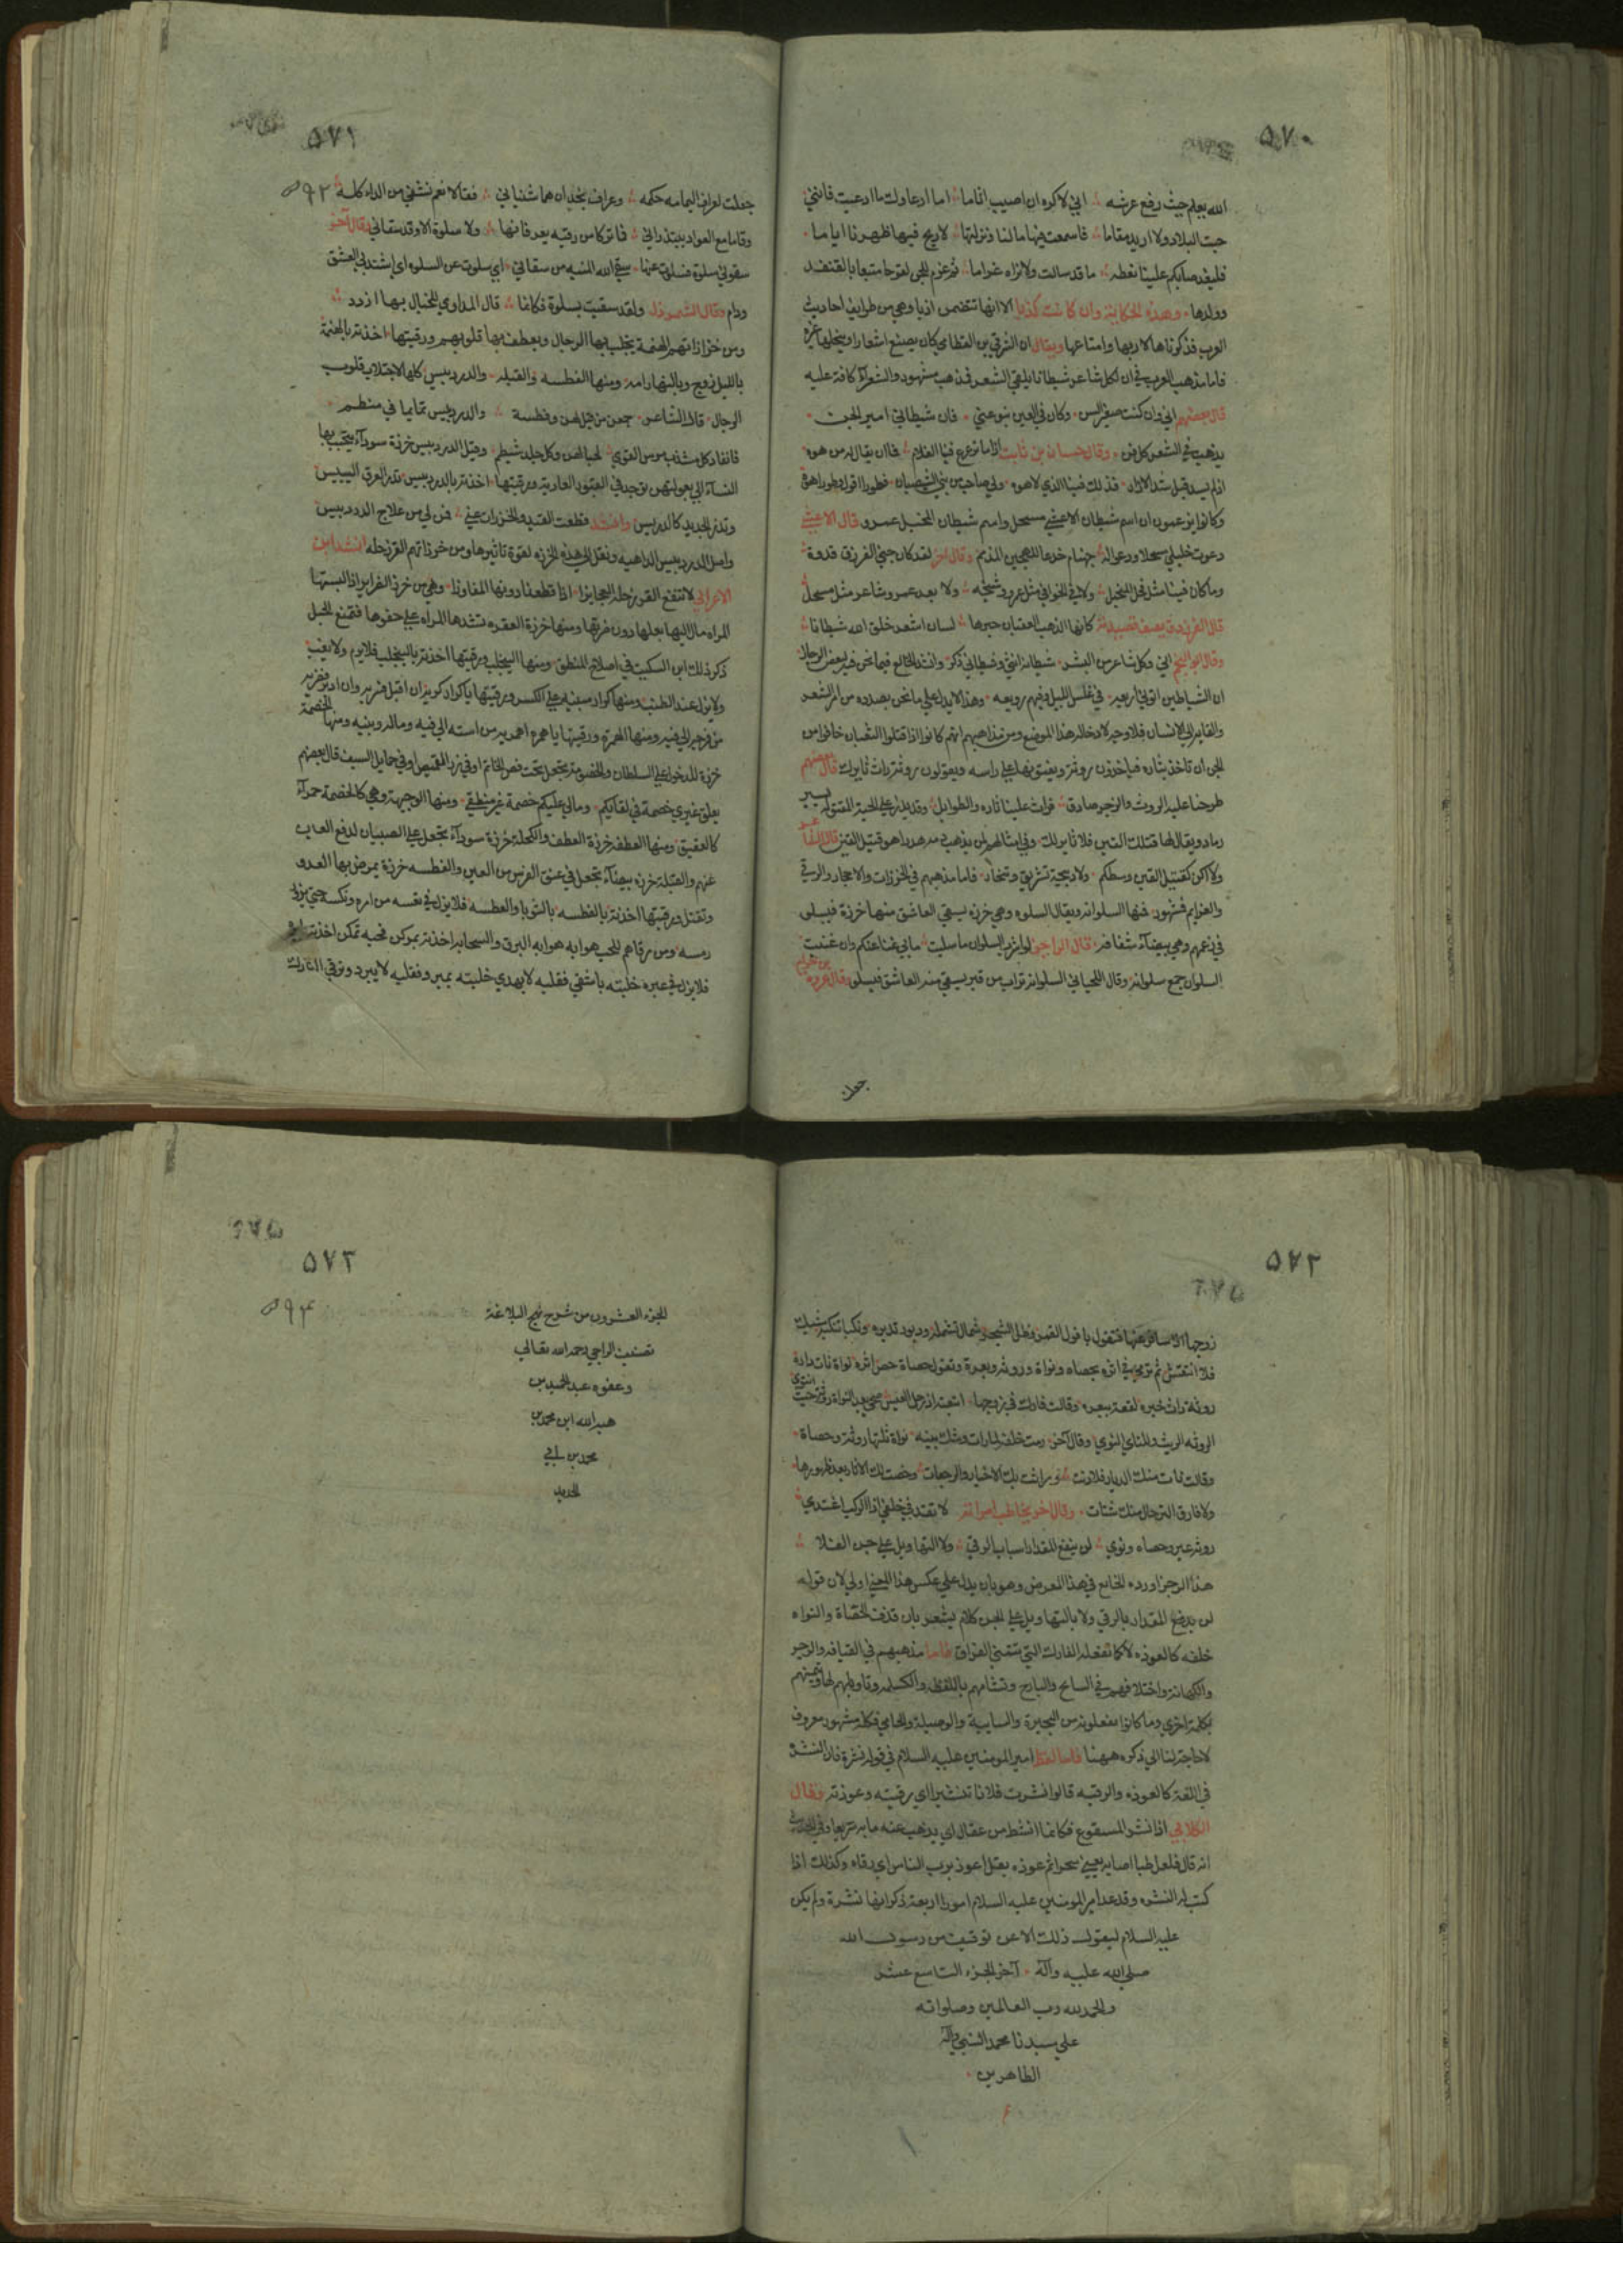 ٥٧٠
الله يعلم حيث رفع عرشه اني لاكره ان اصيب اثاما اما ادعاوك ما ادعيت فانني
جبت البلاد ولا اريد مقاما فاسمعت فيها مالنا ونزلتها لا ريح فيها ظهرنا اياما
فليغد صابكم علينا نعطه ما قد سالت ولا نراه غراما ثم غرم للجن لقوحا متبعا بالقنفد
وولدها وهذه الحكاية وان كانت كذبا الا انها تتضمن ادبا وهي من طرايف احاديث
العرب فذكرناها لادبها وامتاعها ويقال ان الشرقي بن القطامي كان يصنع اشعارا وينحلها غيره
فاما مذهب العرب في ان لكل شاعر شيطانا يلقي الشعر فمذهب مشهور والشعرآء كافة عليه
قال بعضهم اني وان كنت صغير السن وكان في العين نبو عني فان شيطاني امير الجن
يذهب في الشعر كل فن وقال حسان بن ثابت اذا ما ترعرع فينا الغلام فما ان يقال له من هوه
اذا لم يسد قبل شد الازار فذلك فينا الذي لا هوه ولي صاحب من بني الشيصبان فطورا اقول وطورا هوه
وكانوا يزعمون ان اسم شيطان الاعشي مسحل واسم شيطان المخبل عمرو قال الاعشي
دعوت خليلي مسحلا ودعوا له جهنام جدعا للهجين المذمم وقال آخر لقد كان جني الفرزدق قدوة
وما كان فينا مثل فحل المخبل ولا في القوافي مثل عمرو وشيخه ولا بعد عمرو شاعر مثل مسحل
قال الفرزدق يصف قصيدته كانها الذهب العقيان حبرها لسان اشعر خلق الله شيطانا
وقال ابو النجم اني وكل شاعر من البشر شيطانه انثي وشيطاني ذكر وانشد الخالع فيما نحن فيه لبعض الرجال
ان الشياطين اتوني اربعه في غلس الليل وفيهم زوبعه وهذا لا يدل علي ما نحن بصدده من امر الشعر
والقايه الي الانسان فلا وجه لادخاله هذا الموضع ومن مذاهبهم انهم كانوا اذا قتلوا الثعبان خافوا من
الجن ان تاخذ بثاره فياخذون روثة ويفتونها علي راسه ويقولون روثة راث ثايرك قال بعضهم
طرحنا عليه الروث والزجر صادق فراث علينا ثاره والطوايل وقد يذر علي الحية المقتولة يسير
رماد ويقال لها قتلك العين فلا ثاير لك وفي امثالهم لمن يذهب دمه هدرا هو قتيل العين قال الشاعر
ولا اكن كقتيل العين وسطكم ولا ذبيحة تشريق وتنحار فاما مذهبهم في الخرزات والاحجار والرقي
والعزايم فمشهور فمنها السلوانة ويقال السلوه وهي خرزه يسقي العاشق منها خرزة فيسلي
في زعمهم وهي بيضآء شفافه قال الراجز لو اشرب السلوان ما سليت ما بي غنا عنكم وان غنيت
السلوان جمع سلوانة وقال اللحياني السلوانه تراب من قبر يسقي منه العاشق فيسلو وقال عروه بن حزام
جعلت
٥٧١
جعلت لعراف اليمامه حكمه وعراف نجد ان هما شفياني فقالا نعم نشفي من الداء كله
وقاما مع العواد يبتدراني فما تركا من رقيه يعرفانها ولا سلوة الا وقد سقياني وقال آخر
سقوني سلوة فسلوت عنها سقي الله المنيه من سقاني اي سلوت عن السلوه اي اشتد بي العشق
ودام وقال الشمردل ولقد سقيت بسلوة فكانما قال المداوي للخيال بها ازدد
ومن خرزاتهم الهنمة يجتلب بها الرجال ويعطف بها قلوبهم ورقيتها اخذته بالهنمة
بالليل زوج وبالنهار امة ومنها الفطسه والقبله والدردبيس كلها لاجتلاب قلوب
الرجال قال الشاعر جمعن من قبل لهن وفطسة والدردبيس تمايما في منظم
فانقاد كل مشذب مرس القوي لحبالهن وكل جلد شيظم وقيل الدردبيس خرزة سودآء يتحبب بها
النسآء الي بعولتهن توجد في القبور العادية ورقيتها اخذته بالدردبيس تدر العرق اليبيس
وتذر الجديد كالدريس وانشد قطعت القيد والخرزات عني فمن لي من علاج الدردبيس
واصل الدردبيس الداهيه ونقل الي هذه الخرزه لقوة تاثيرها ومن خرزاتهم القرزحله انشد ابن
الاعرابي لا تنفع القرزحلة العجايزا اذا قطعنا دونها المفاوزا وهي من خرز الضراير اذا لبستها
المراه مال اليها بعلها دون ضرتها ومنها خرزة العقره تشدها المراه علي حقوها فتمنع الحبل
ذكر ذلك ابن السكيت في اصلاح المنطق ومنها الينجلب ورقيتها اخذته بالينجلب فلا يرم ولا يغب
ولا يزل عند الطنب ومنها كرار مبنيه علي الكسر ورقيتها يا كرار كريه ان اقبل فسريه وان ادبر فضريه
من فرجه الي فيه ومنها الهمرة ورقيتها يا همره اهمريه من استه الي فيه وماله وبنيه ومنها الخصمة
خرزة للدخول علي السلطان والخصومة تجعل تحت فص الخاتم او في زر القميص او في حمايل السيف قال بعضهم
يعلق غيري خصمة في لقايكم ومالي عليكم خصمة غير منطقي ومنها الوجيهة وهي كالخصمة حمرآء
كالعقيق ومنها العطفه خرزة العطف والكحلة خرزة سودآء تجعل علي الصبيان لدفع العاب
عنهم والقبلة خرزه بيضآء تجعل في عنق الفرس من العين والفطسه خرزة يمرض بها العدو
وتقتل ورقيتها اخذته بالفطسه بالثوبا والعطسه فلا يزل في تعسه من امره ونكسه حتي يزور
رمسه ومن رقاهم للحب هوابه هوابه البرق والسحابه اخذته بمركن فحبه تمكن اخذته
فلا يزل في عبره خليته باشفي فقلبه لا يهدي خليته بمبرد فقلبه لا يبرد وترقي الفارك
٥٧٢
زوجها اذا سافر عنها فتقول بافول القمر وظل الشجر شمال تشمله ودبور تدبره ونكبا تنكبه شيك
فلا انتقش ثم ترمي في اثره بحصاه ونواة وروثه وبعرة وتقول حصاة حص اثره نواة نات داره
روثة راث خبره لقعة ببعره وقالت فارك في زوجها اتبعته اذ رحل العيس ضحي بعد النواة روثة حيث انتوي
الروثه الريث وللناي النوي وقال آخر رمت خلفه لما رات وشك بينه نواة تلتها روثه وحصاة
وقالت نات منك الديار فلا دنت وراثت بك الاخبار والرجعات وحصت لك الاثار بعد ظهورها
ولا فارق الترحال منك شتات وقال آخر يخاطب امراته لا تقذفي خلفي اذا الركب اغتدي
روثة عير وحصاه ونوي لن يدفع المقدار اسباب الرقي ولا التهاويل علي جن الفلا
هذا الرجز اورده الخالع في هذا المعرض وهو بان يدل علي عكس هذا المعني اولي لان قوله
لن يدفع المقدار بالرقي ولا بالتهاويل علي الجن كلام يشعر بان قذف الحصاة والنواه
خلفه كالعوذه لا كما تفعله الفارك التي تتمني الفراق فاما مذهبهم في القيافه والزجر
والكهانة واختلافهم في السانح والبارح وتشامهم باللفظ والكلمه وتاويلهم لها وتيمنهم
بكلمة اخري وما كانوا يفعلونه من البحيرة والسايبة والوصيلة والحامي فكله مشهور معروف
لا حاجة لنا الي ذكره ههنا فاما لفظ امير المومنين عليه السلام في قوله نشرة فان النشرة
في اللغة كالعوذه والرقيه قالوا نشرت فلانا تنشيرا اي رقيته وعوذته وقال
الكلابي اذا نشر المسفوع فكانما انشط من عقال اي يذهب عنه ما به سريعا وفي الحديث
انه قال فلعل طبا اصابه يعني سحرا ثم عوذه بقل اعوذ برب الناس اي رقاه وكذلك اذا
كتب له النشره وقد عد امير المومنين عليه السلام امورا اربعة ذكر انها نشرة ولم يكن
عليه السلام ليقول ذلك الا عن توقيف من رسول الله
صلي الله عليه وآله آخر الجزء التاسع عشر
والحمد لله رب العالمين وصلواته
علي سيدنا محمد النبي وآله
الطاهرين
٥٧٣
الجزء العشرون من شرح نهج البلاغة
تصنيف الراجي رحمه الله تعالي
وعفوه عبد الحميد بن
هبه الله ابن محمد بن
محمد بن ابي
الحديد